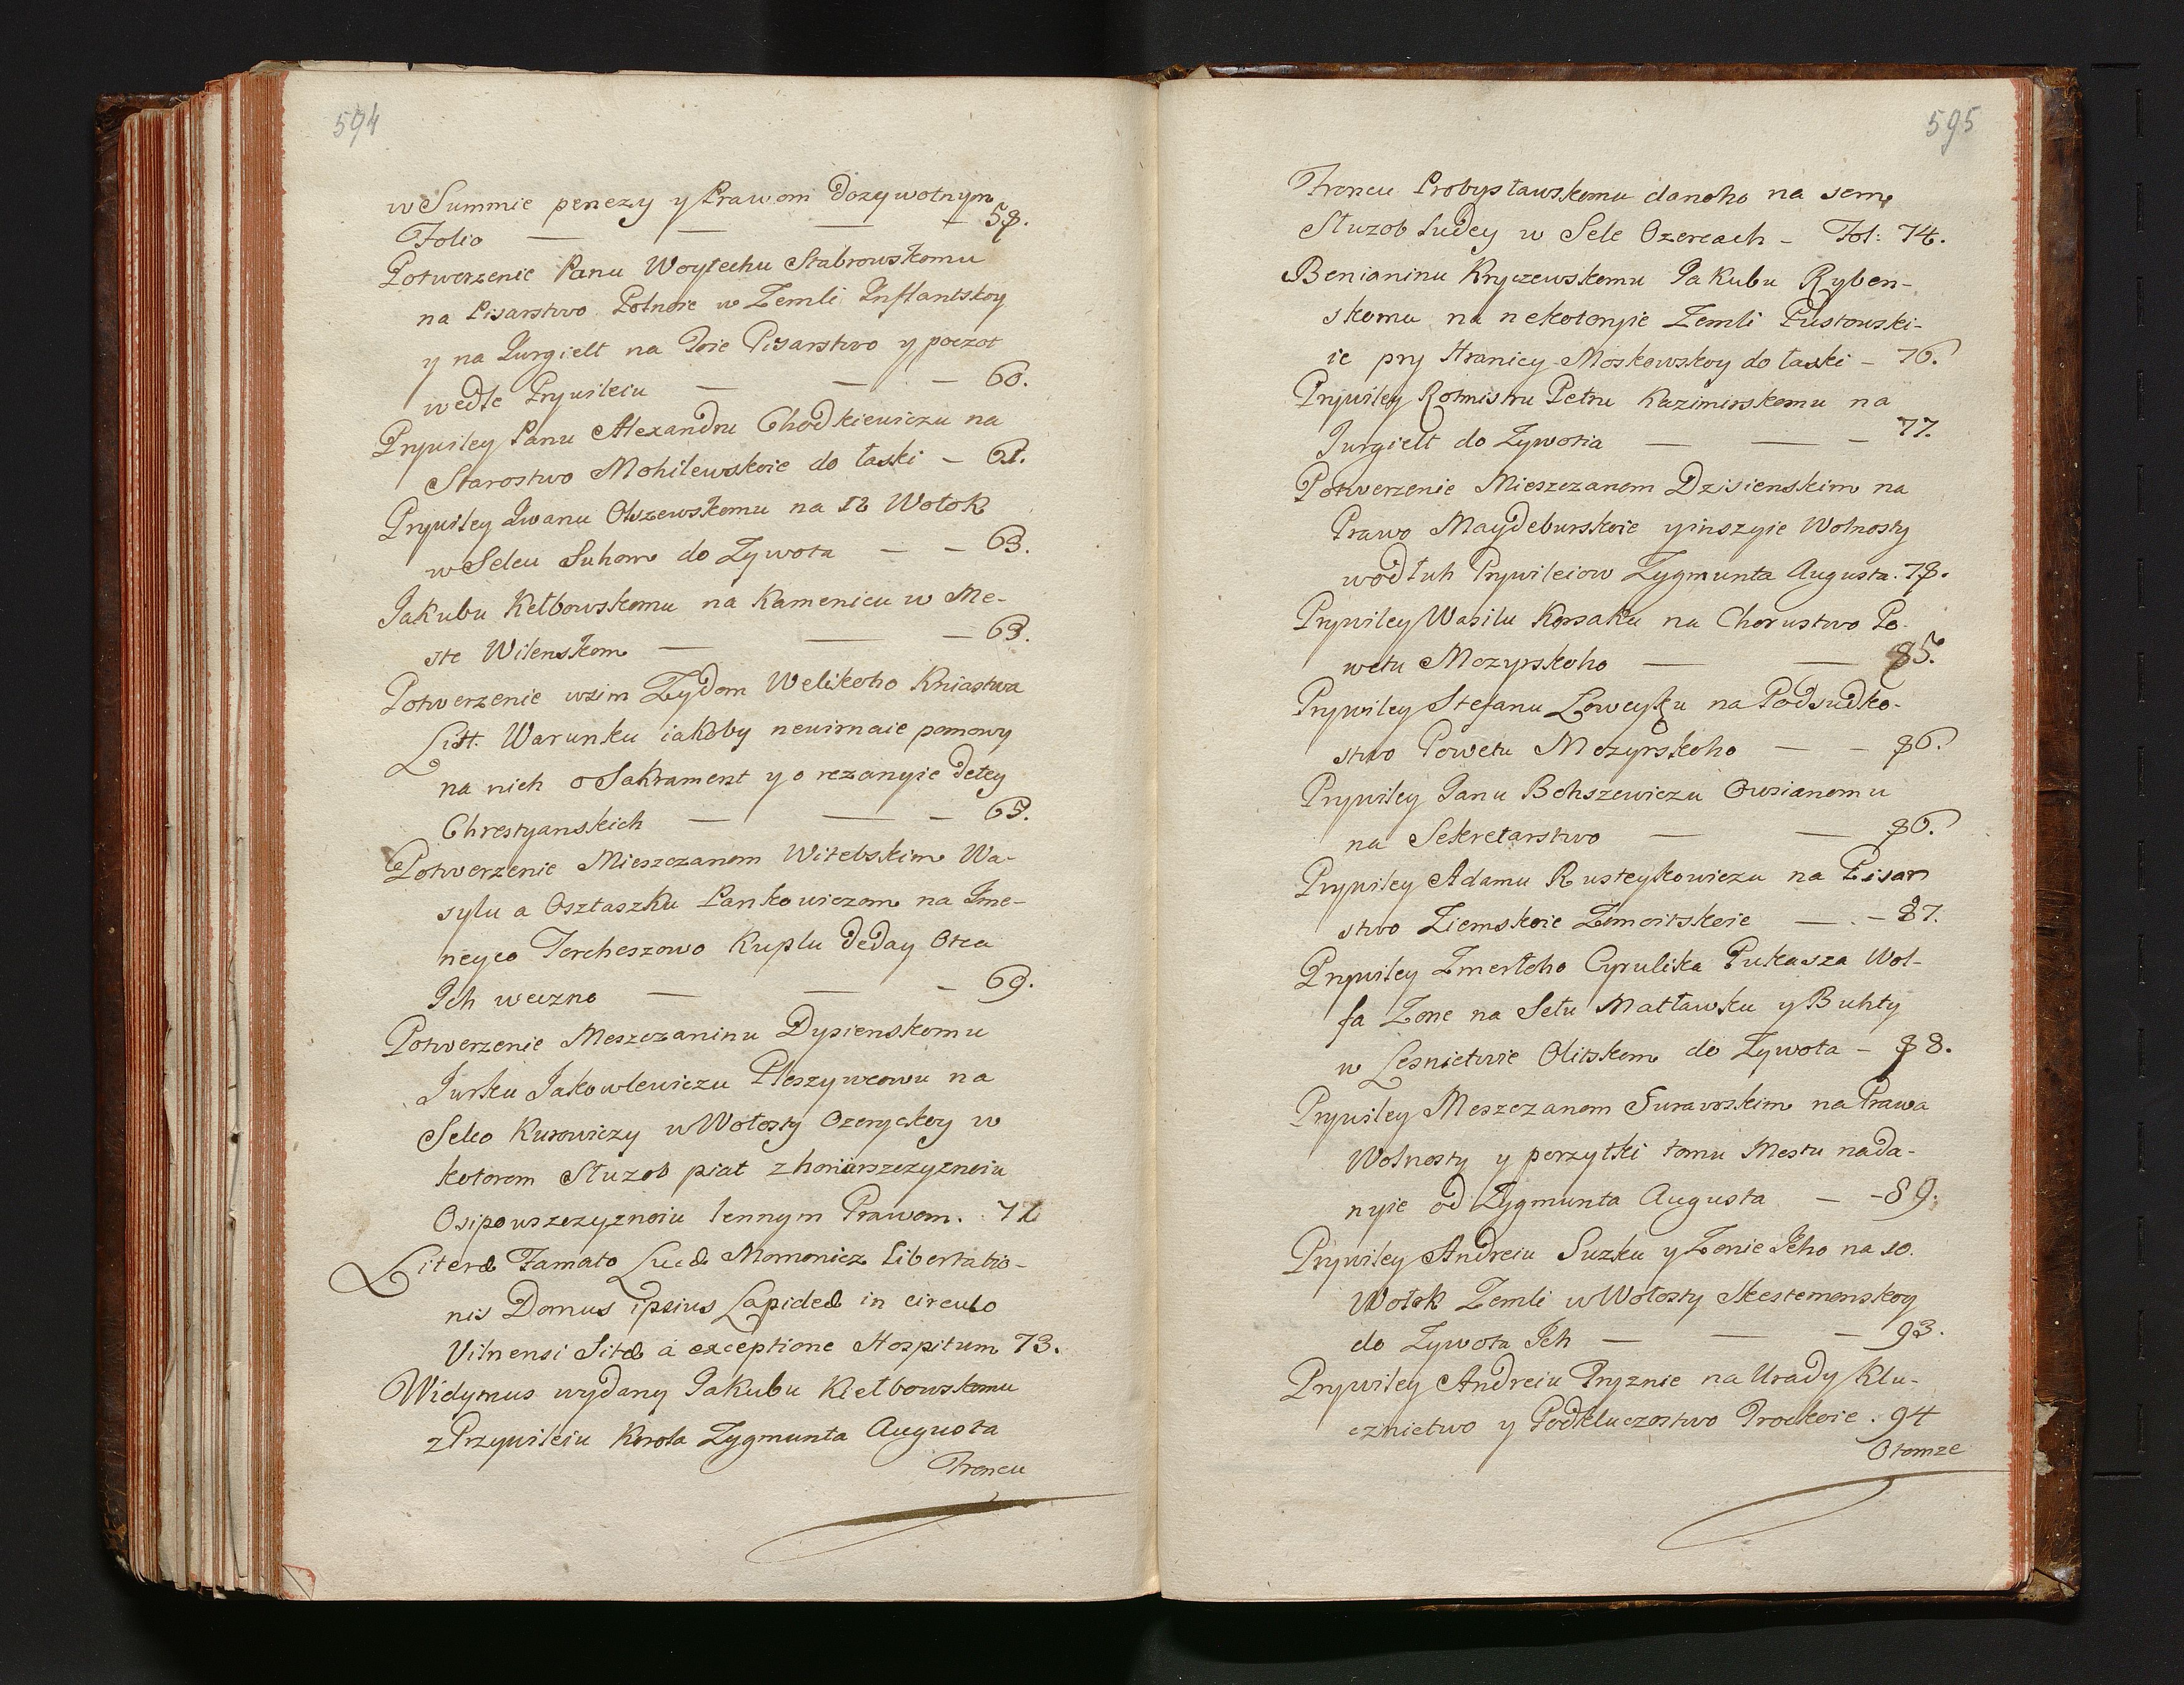 594
w Summie penezy y Prawom Dozywotnym
Folio — — — — 58.
Potwerzenie Panu Woytechu Stabrowskomu
na Pisarstwo Polnoie w Zemli Inflantskoy
y na Jurgielt na Toie Pisarstwo y poczot
wedle Prywileiu — — — 60.
Prywiley Panu Alexandru Chodkiewiczu na
Starostwo Mohilewskoie do łaski — 61.
Prywiley Iwanu Olszewskomu na 12 Wołok
w Selcu Suhom do Zywota — — 63.
Jakubu Kełbowskomu na Kamenicu w Me-
ste Wilenskom — — — 63.
Potwerzenie wsim Zydom Welikoho Kniastwa
List. Warunku iakoby newirnaie pomowy
na nich o Sakrament y o rezanyie detey
Chrestyanskich — — — 65.
Potwerzenie Mieszczanom Witebskim Wa-
sylu a Osztaszku Pankowiczom na Ime-
neyco Tercheszowo Kuplu deday Otca
Ich weczno — — — 69.
Potwerzenie Meszczaninu Dysienskomu
Jurku Jakowlewiczu Pleszywcowu na
Selco Kurowiczy w Wołosty Ozeryckoy w
kotorom Słuzob piat z honiarszczyznoiu
Osipowszczyznoiu lennym Prawom. 71
Literæ Famato Lucæ Mamonicz Libertatio-
nis Domus ipsius Lapideæ in circulo
Vilnensi Sitæ à exceptione Hospitum 73.
Widymus wydany Jakubu Kiełbowskomu
z Przywileiu Korola Zygmunta Augusta
Froncu
595
Froncu Probysławskomu danoho na sem
Słuzob Ludey w Sele Ozercach — Fol: 74.
Benianinu Kryczewskomu Jakubu Ryben-
skomu na nekotoryie Zemli Pustowski-
ie pry Hranicy Moskowskoy do łaski — 76.
Prywiley Rotmistru Petru Kazimirskomu na
Jurgielt do Zywotia — — — 77.
Potwerzenie Mieszczanom Dzisienskim na
Prawo Maydeburskoie y inszyie Wolnosty
wodłuh Prywileiow Zygmunta Augusta. 78.
Prywiley Wasilu Korsaku na Chorustwo Po-
wetu Mozyrskoho — — 85.
Prywiley Stefanu Lowcysku na Podsudko-
stwo Powetu Mozyrskoho — — 86.
Prywiley Janu Bohszewiczu Owsianomu
na Sekretarstwo — — 86.
Prywiley Adamu Rusteykowiczu na Pisar
stwo Ziemskoie Zmoitskoie — — 87.
Prywiley Zmerłoho Cyrulika Łukasza Wol-
fa Zone na Sełu Matławsku y Buhty
w Lesnictwie Olitskom do Zywota — 88.
Prywiley Meszczanom Surazskim na Prawa
Wolnosty y pozytki tomu Mestu nada-
nyie od Zygmunta Augusta — — 89.
Prywiley Andreiu Suzku y Zonie Jeho na 10.
Wołok Zemli w Wołosty Skestemonskoy
do Zywota Ich — — — 93.
Prywiley Andreiu Pryznie na Urady Klu-
cznictwo y Podkluczostwo Trockoie. 94
Otomze